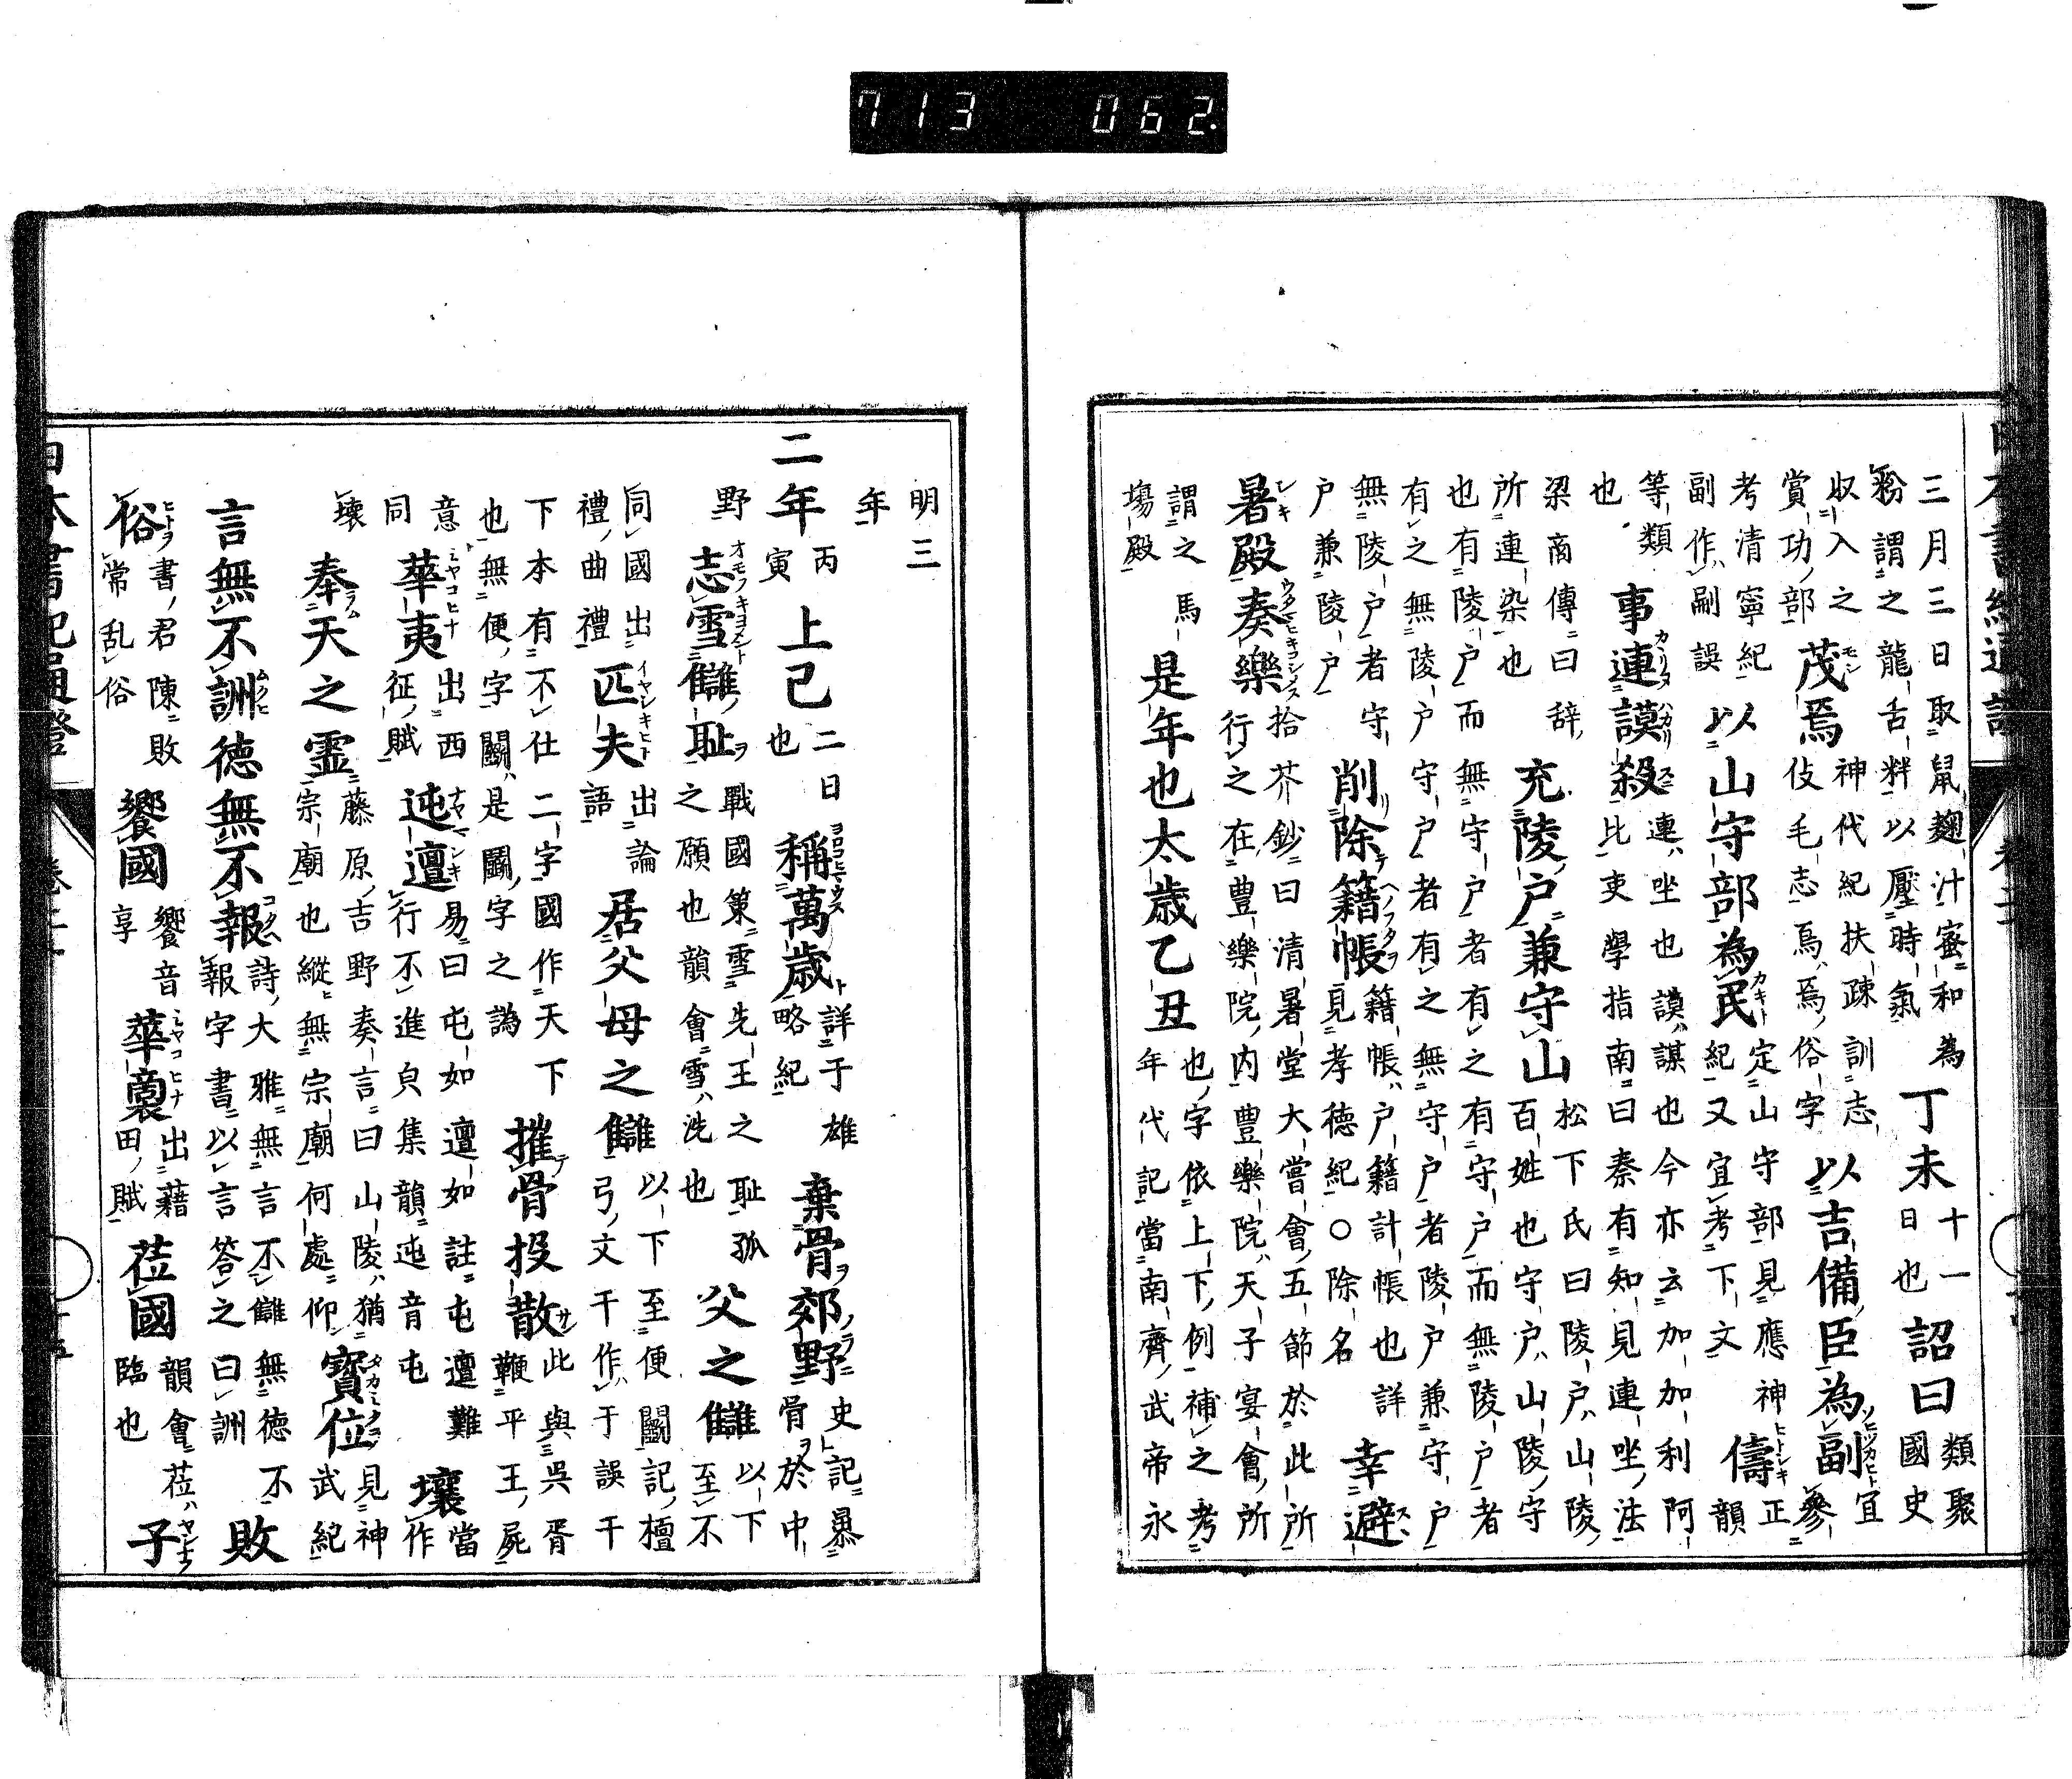 713 062.
三月三日取鼠麹汁蜜和為
粉謂之龍舌䉽以壓時氣
丁未
十一
日也
詔曰
類聚
國史
収入之
賞功部
茂焉
神代紀扶疎訓志
伎毛志焉焉俗字
以吉備臣為副
宜
參
考清寧紀
副作副誤
以山守部為民
定山守部見應神
紀又宜考下文
儔
正
韻
等類
也
事連謨殺
連坐也謨謀也今亦云加加利阿
比吏學指南曰秦有知見連坐法
梁商傳曰辞
所連染也
充陵戸兼守山
松下氏曰陵戸山陵
百姓也守戸山陵守
也有陵戸而無守戸者有之有守戸而無陵戸者
有之無陵戸守戸者有之無守戸者陵戸兼守戸
無陵戸者守
戸兼陵戸
削除籍帳
籍帳戸籍計帳也詳
見孝徳紀○除名
幸避
暑殿奏樂
拾芥鈔曰清暑堂大嘗會五節於此所
行之在豊樂院内豊樂院天子宴會所
謂之馬
場殿
是年也太歳乙丑
也字依上下例補之考
年代記當南齊武帝永
明三
年
二年
丙
寅
上巳
二日
也
稱萬歳
詳于雄
略紀
棄骨郊野
史記暴
骨於中
野
志雪讎耻
戰國策雪先王之耻孤
之願也韻會雪洗也
父之讎
以下
至不
同國出
禮曲禮
匹夫
出論
語
居父母之讎
以下至便鬭記檀
弓文干作于誤干
下本有不仕二字國作天下
也無便字鬭是鬭字之譌
摧骨投散
此與呉胥
鞭平王屍
意
同
華夷
出西
征賦
迍邅
易曰屯如邅如註屯邅難
行不進貞集韻迍音屯
壤
當
作
壊
奉天之霊
藤原吉野奏言曰山陵猶
宗廟也縱無宗廟何處仰
寶位
見神
武紀
言無不詶徳無不報
詩大雅無言不讎無徳不
報字書以言答之曰詶
敗
俗
書君陳敗
常乱俗
饗國
饗音
享
華裔
出藉
田賦
莅國
韻會莅
臨也
子